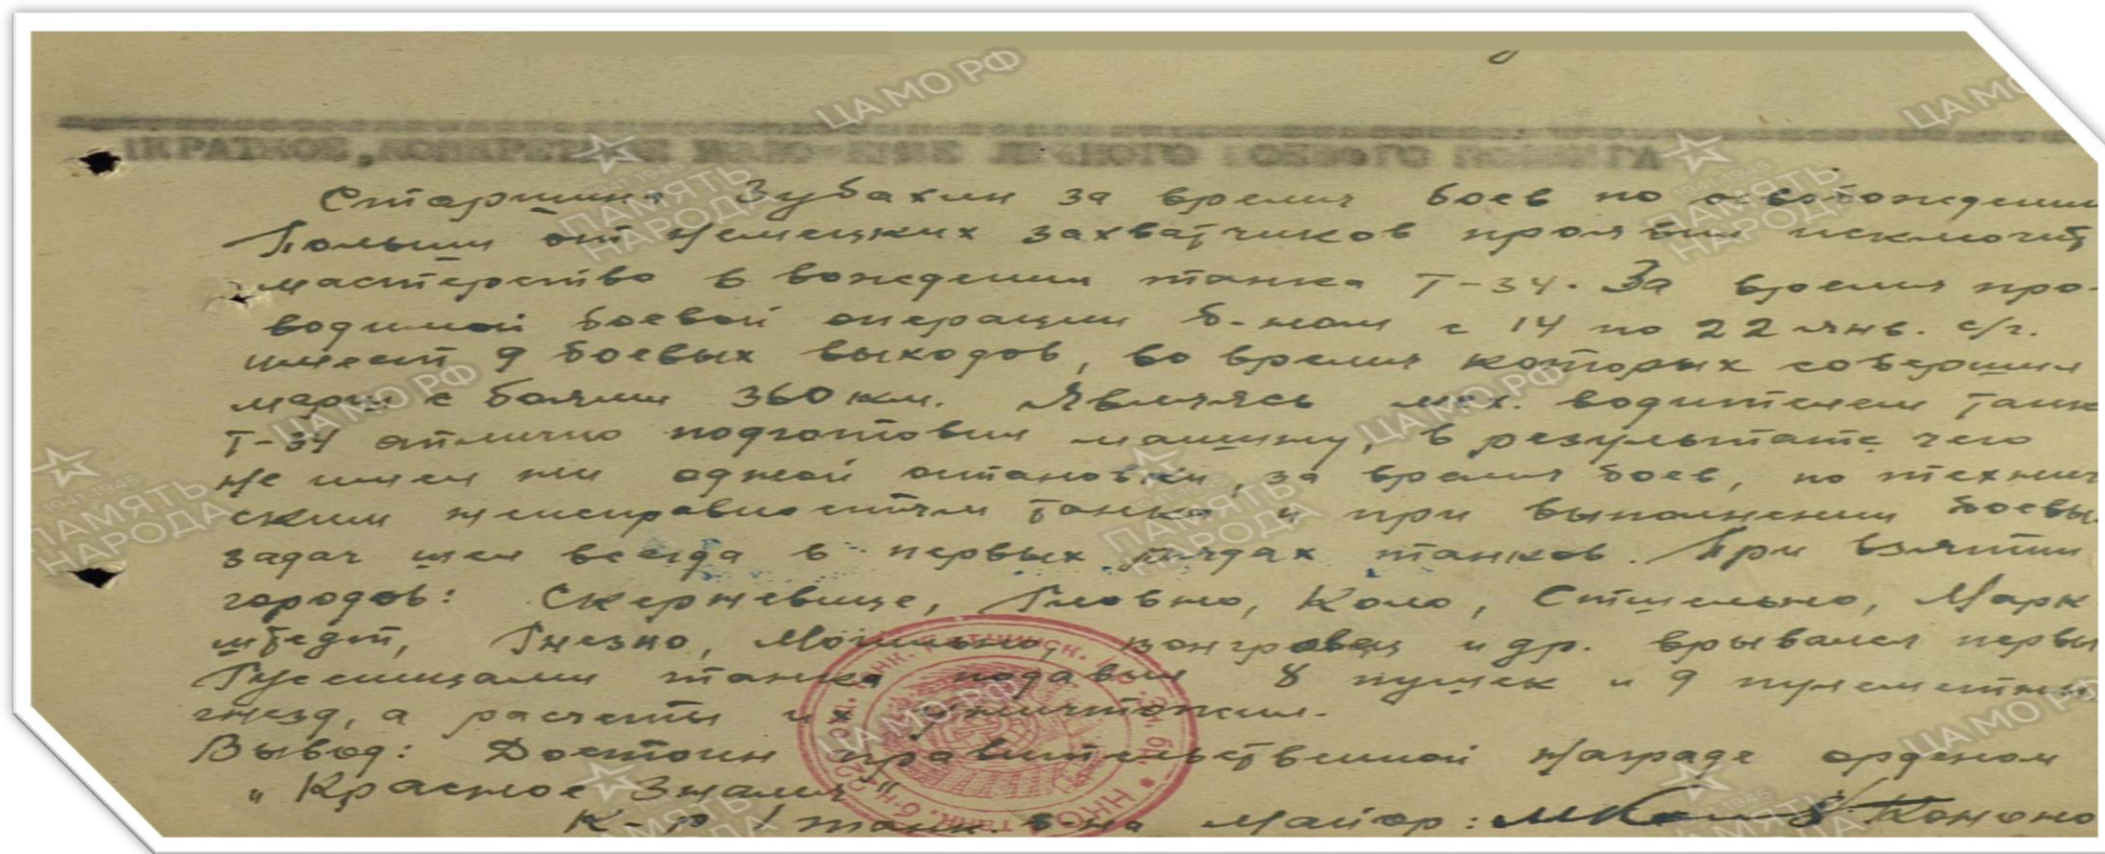 КРАТКОЕ, КОНКРЕТНОЕ ИЗЛОЖЕНИЕ ЛИЧНОГО БОЕВОГО ПОДВИГА
Старшина Зубахин за время боев по освобождении
Польши от немецких захватчиков проявил исключит
мастерство в вождении танка Т-34. За время про-
водимой боевой операции б-ном с 14 по 22 янв. с/г.
имеет 9 боевых выходов, во время которых совершил
марш с боями 360 км. Являясь мех. водителем танк
Т-34 отлично подготовил машину, в результате чего
не имел ни одной остановки, за время боев, по технич
ским неисправностям танка и при выполнении боевы
задач шел всегда в первых рядах танков. При взятии
городов: Скерневице, Гловно, Коло, Стшельно, Марк
штедт, Гнезно, Могильно, Вонгровец и др. врывался первы
Гусеницами танка подавил 8 пушек и 9 пулеметны
гнезд, а расчеты их уничтожил.
Вывод: Достоин правительственной награде орденом
„Красное Знамя"
К-р 1 танк. б-на майор: Конон
ЦАМО РФ
ЦАМО
ПАМЯТЬ НАРОДА
1941-1945
ПАМЯТЬ НАРОДА
ЦАМО РФ
ЦАМО РФ
1941-1945
ПАМЯТЬ НАРОДА
ПАМЯТЬ НАРОДА
ЦАМО РФ
ЦАМО РФ